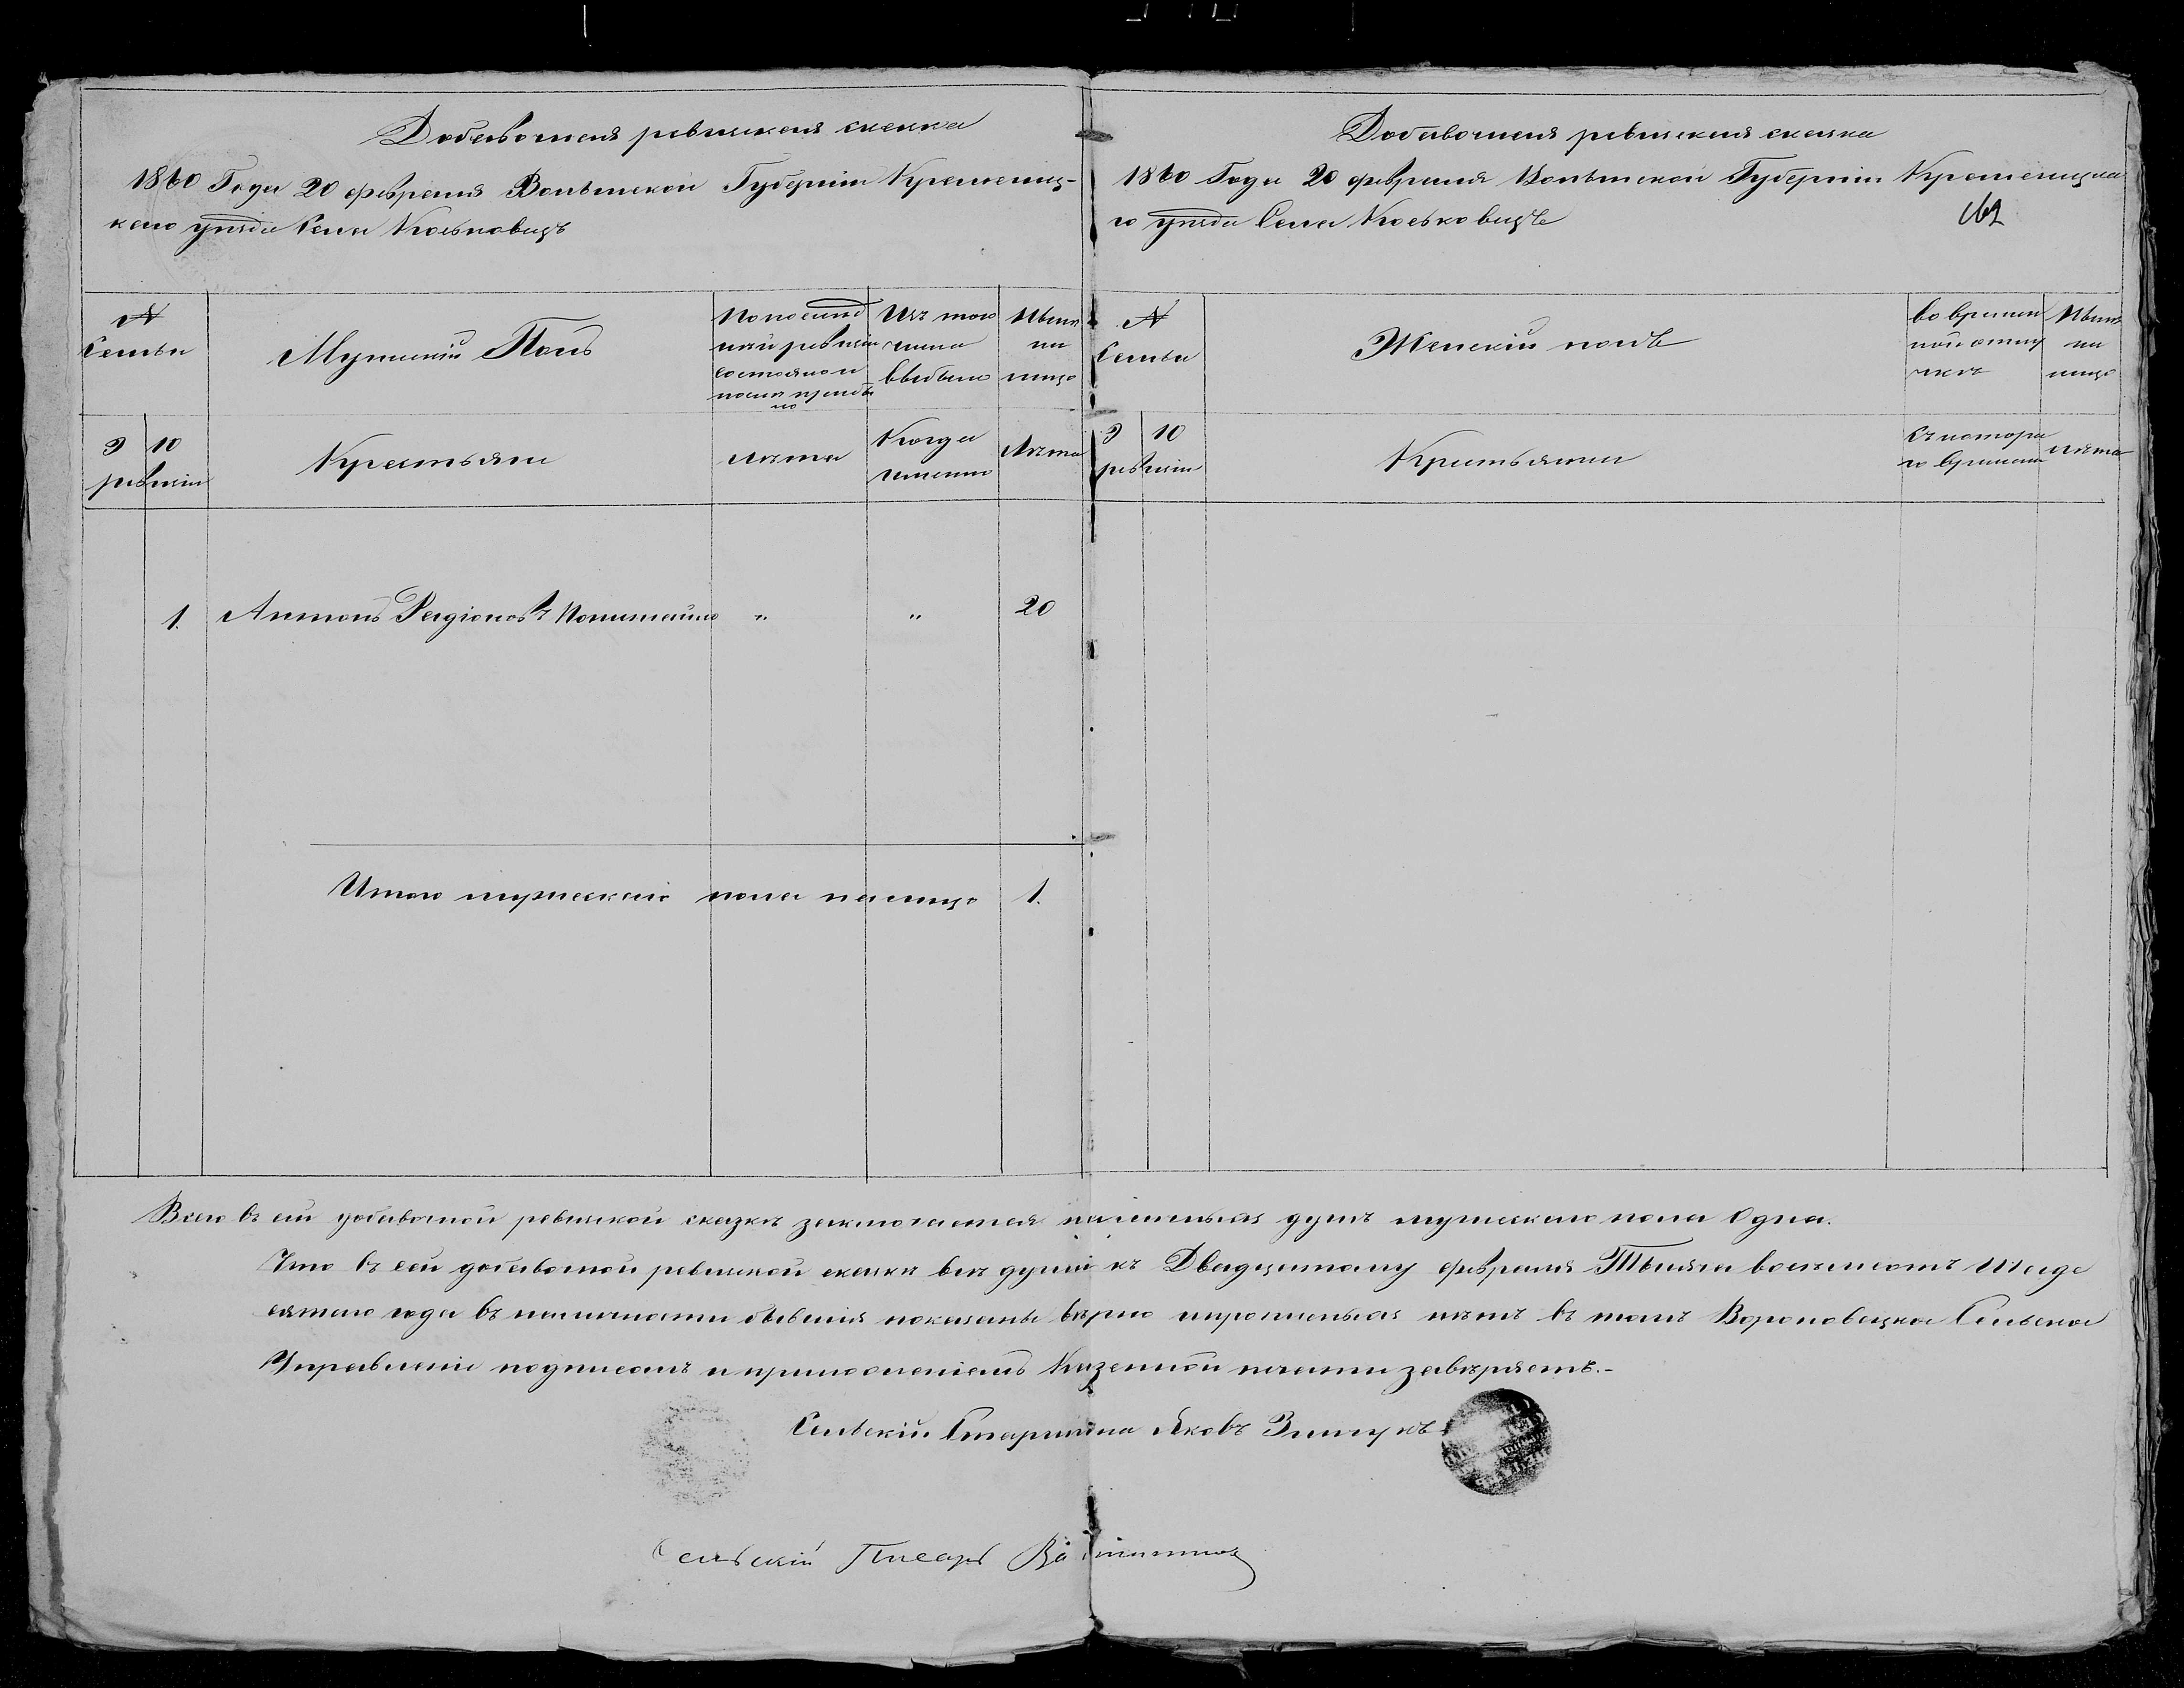 Добавочная ревизская сказка
1860 Года 20 февраля Волынской Губерніи Кременец-
каго уѣзда Села Коськовецъ
№
Семьи
Мужескій Полъ
По послѣд
ней ревизіи
состояло и
послѣ прибы
ло
Изъ того
числа
выбыло
Нынѣ
на
лицо
9 10
ревизіи
Крестьяне
Лѣта
Когда
именно
Лѣта
1. Антонъ Коломейко " " 20
Итого мужескаго пола на лицо 1.
Добавочная ревизская сказка
1860 Года 20 февраля Волынской Губерніи Кременецка
го уѣзда Села Коськовецъ
№
Семьи
Женскій полъ
во времен
ной отлу
чкѣ
Нынѣ
на
лицо
9 10
ревизіи
Крестьянки
Съ котора
го времени
лѣта
Всего въ сей добавочной ревизской сказкѣ заключается наличныхъ душъ мужескаго пола Одна.
Что въ сей добавочной ревизской сказкѣ всѣ души къ Двадцатому февраля Тысяча восемьсотъ Шеде
сятаго года въ наличности бывшія показаны вѣрно и прописныхъ нѣтъ въ томъ Сельское
Управленіе подписомъ и приложеніемъ Казенной печати завѣряетъ.-
Сельскій Старшина Яковъ
Сельскій Писарь